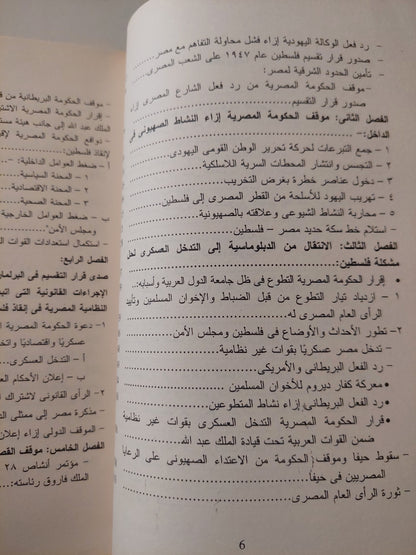 - رد فعل الوكالة اليهودية إزاء فشل محاولة التفاهم مع مصر...
- صدور قرار تقسيم فلسطين عام ١٩٤٧ على الشعب المصرى...
- تأمين الحدود الشرقية لمصر:
- موقف الحكومة المصرية من رد فعل الشارع المصرى إزاء
صدور قرار التقسيم...
الفصل الثانى: موقف الحكومة المصرية إزاء النشاط الصهيونى فى
الداخل:
١ - جمع التبرعات لحركة تحرير الوطن القومى اليهودى...
٢ - التجسس وانتشار المحطات السرية اللاسلكية...
٣ - دخول عناصر خطرة بغرض التخريب...
٤ - تهريب اليهود للأسلحة من القطر المصرى إلى فلسطين...
٥ - محاربة النشاط الشيوعى وعلاقته بالصهيونية...
- استلام خط سكة حديد مصر – فلسطين...
الفصل الثالث: الانتقال من الدبلوماسية إلى التدخل العسكرى لحل
مشكلة فلسطين:
- إقرار الحكومة المصرية التطوع فى ظل جامعة الدول العربية وأسبابه:
١ - ازدياد تيار التطوع من قبل الضباط والإخوان المسلمين وتأييد
الرأى العام المصرى له
٢ - تطور الأحداث والأوضاع فى فلسطين ومجلس الأمن...
- تدخل مصر عسكريًا بقوات غير نظامية...
- رد الفعل البريطانى والأمريكى...
• معركة كفار ديروم للأخوان المسلمين
• رد الفعل البريطانى إزاء نشاط المتطوعين...
- قرار الحكومة المصرية التدخل العسكرى بقوات غير نظامية
ضمن القوات العربية تحت قيادة الملك عبد الله...
- سقوط حيفا وموقف الحكومة من الاعتداء الصهيونى على الرعايا
المصريين فى حيفا...
- ثورة الرأى العام المصرى...
6
- موقف الحكومة البريطانية من
- قرار الحكومة المصرية
الملك عبد الله إلى جانب هيئة
- دوافع الحكومة المصرية
لإنقاذ فلسطين:
أ - ضغط العوامل الداخلية:
١ - المحنة السياسية...
٢ - المحنة الاقتصادية...
٣ - المحنة الصحية...
ب - ضغط العوامل الخارجية
ومجلس الأمن"
- استكمال استعدادات القوات
الفصل الرابع:
صدى قرار التقسيم فى
الإجراءات القانونية التى
النظامية المصرية فى إنقاذ
١ - دعوة الحكومة المصرية
واقتصاديًا
أ - التدخل العسكرى...
ب - إعلان الأحكام
٢ - الرأى القانونى لاشتراك
- مذكرة مصر إلى ممثلى
- الموقف الدولى إزاء إعلان
الفصل الخامس: موقف
- مؤتمر أنشاص ٢٨
الملك فاروق رئاسته: